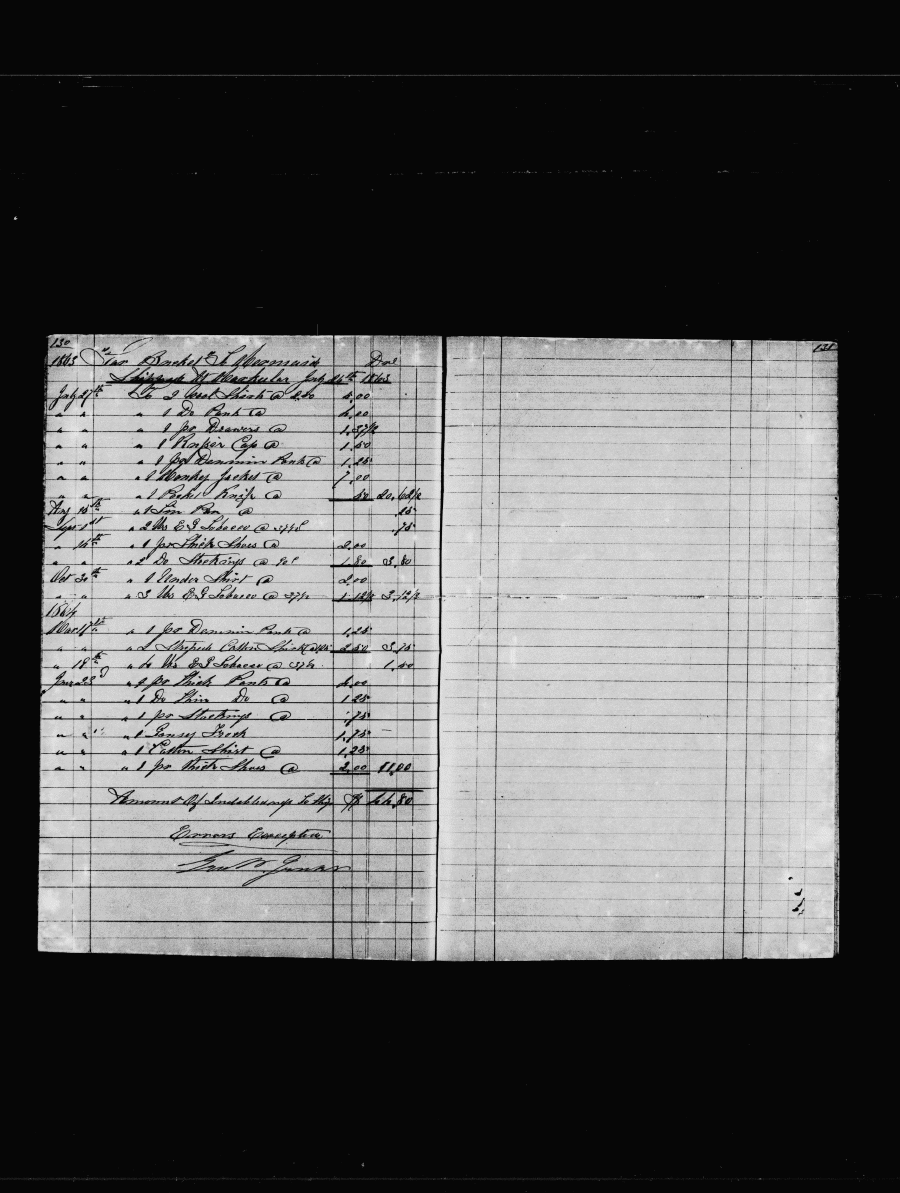 130
1863 Barke Dr
Shipped At July 24th 1863
July 27th To 2 Wool Shirts @ 2.00 4.00
" " " 1 Do Pants @ 4.00
" " " 1 pr Drawers @ 1.37½
" " " 1 Cap @ 1.50
" " " 1 pr Dennim Pants @ 1.25
" " " 1 Monkey Jacket @ 7.00
" " " 1 Knife @ 50 20.62½
Aug 15th " 1 Tin Pan @ .25
Sept 1st " 2 lbs Tobacco @ 37½c .75
" 14th " 1 pr Thick Shoes @ 2.00
" " " 2 Do Stockings @ 90c 1.80 3.80
Oct 30th " 1 Under Shirt @ 2.00
" " " 3 lbs Tobacco @ 37½ 1.12½ 3.12½
1864
Mar 17th " 1 pr Dennim Pants @ 1.25
" " " 2 Striped Cotton Shirts @ 1.25 2.50 3.75
" 18th " 4 lbs Tobacco @ 37½ 1.50
23d " 1 pr Thick Pants @ 4.00
" " " 1 Do Thin Do @ 1.25
" " " 1 pr Stockings @ .75
" " " 1 Frock 1.75
" " " 1 Cotton Shirt @ 1.25
" " " 1 pr Thick Shoes @ 2.00 11.00
Amount Of Indebtedness To Ship $ 44.80
Errors Excepted
131